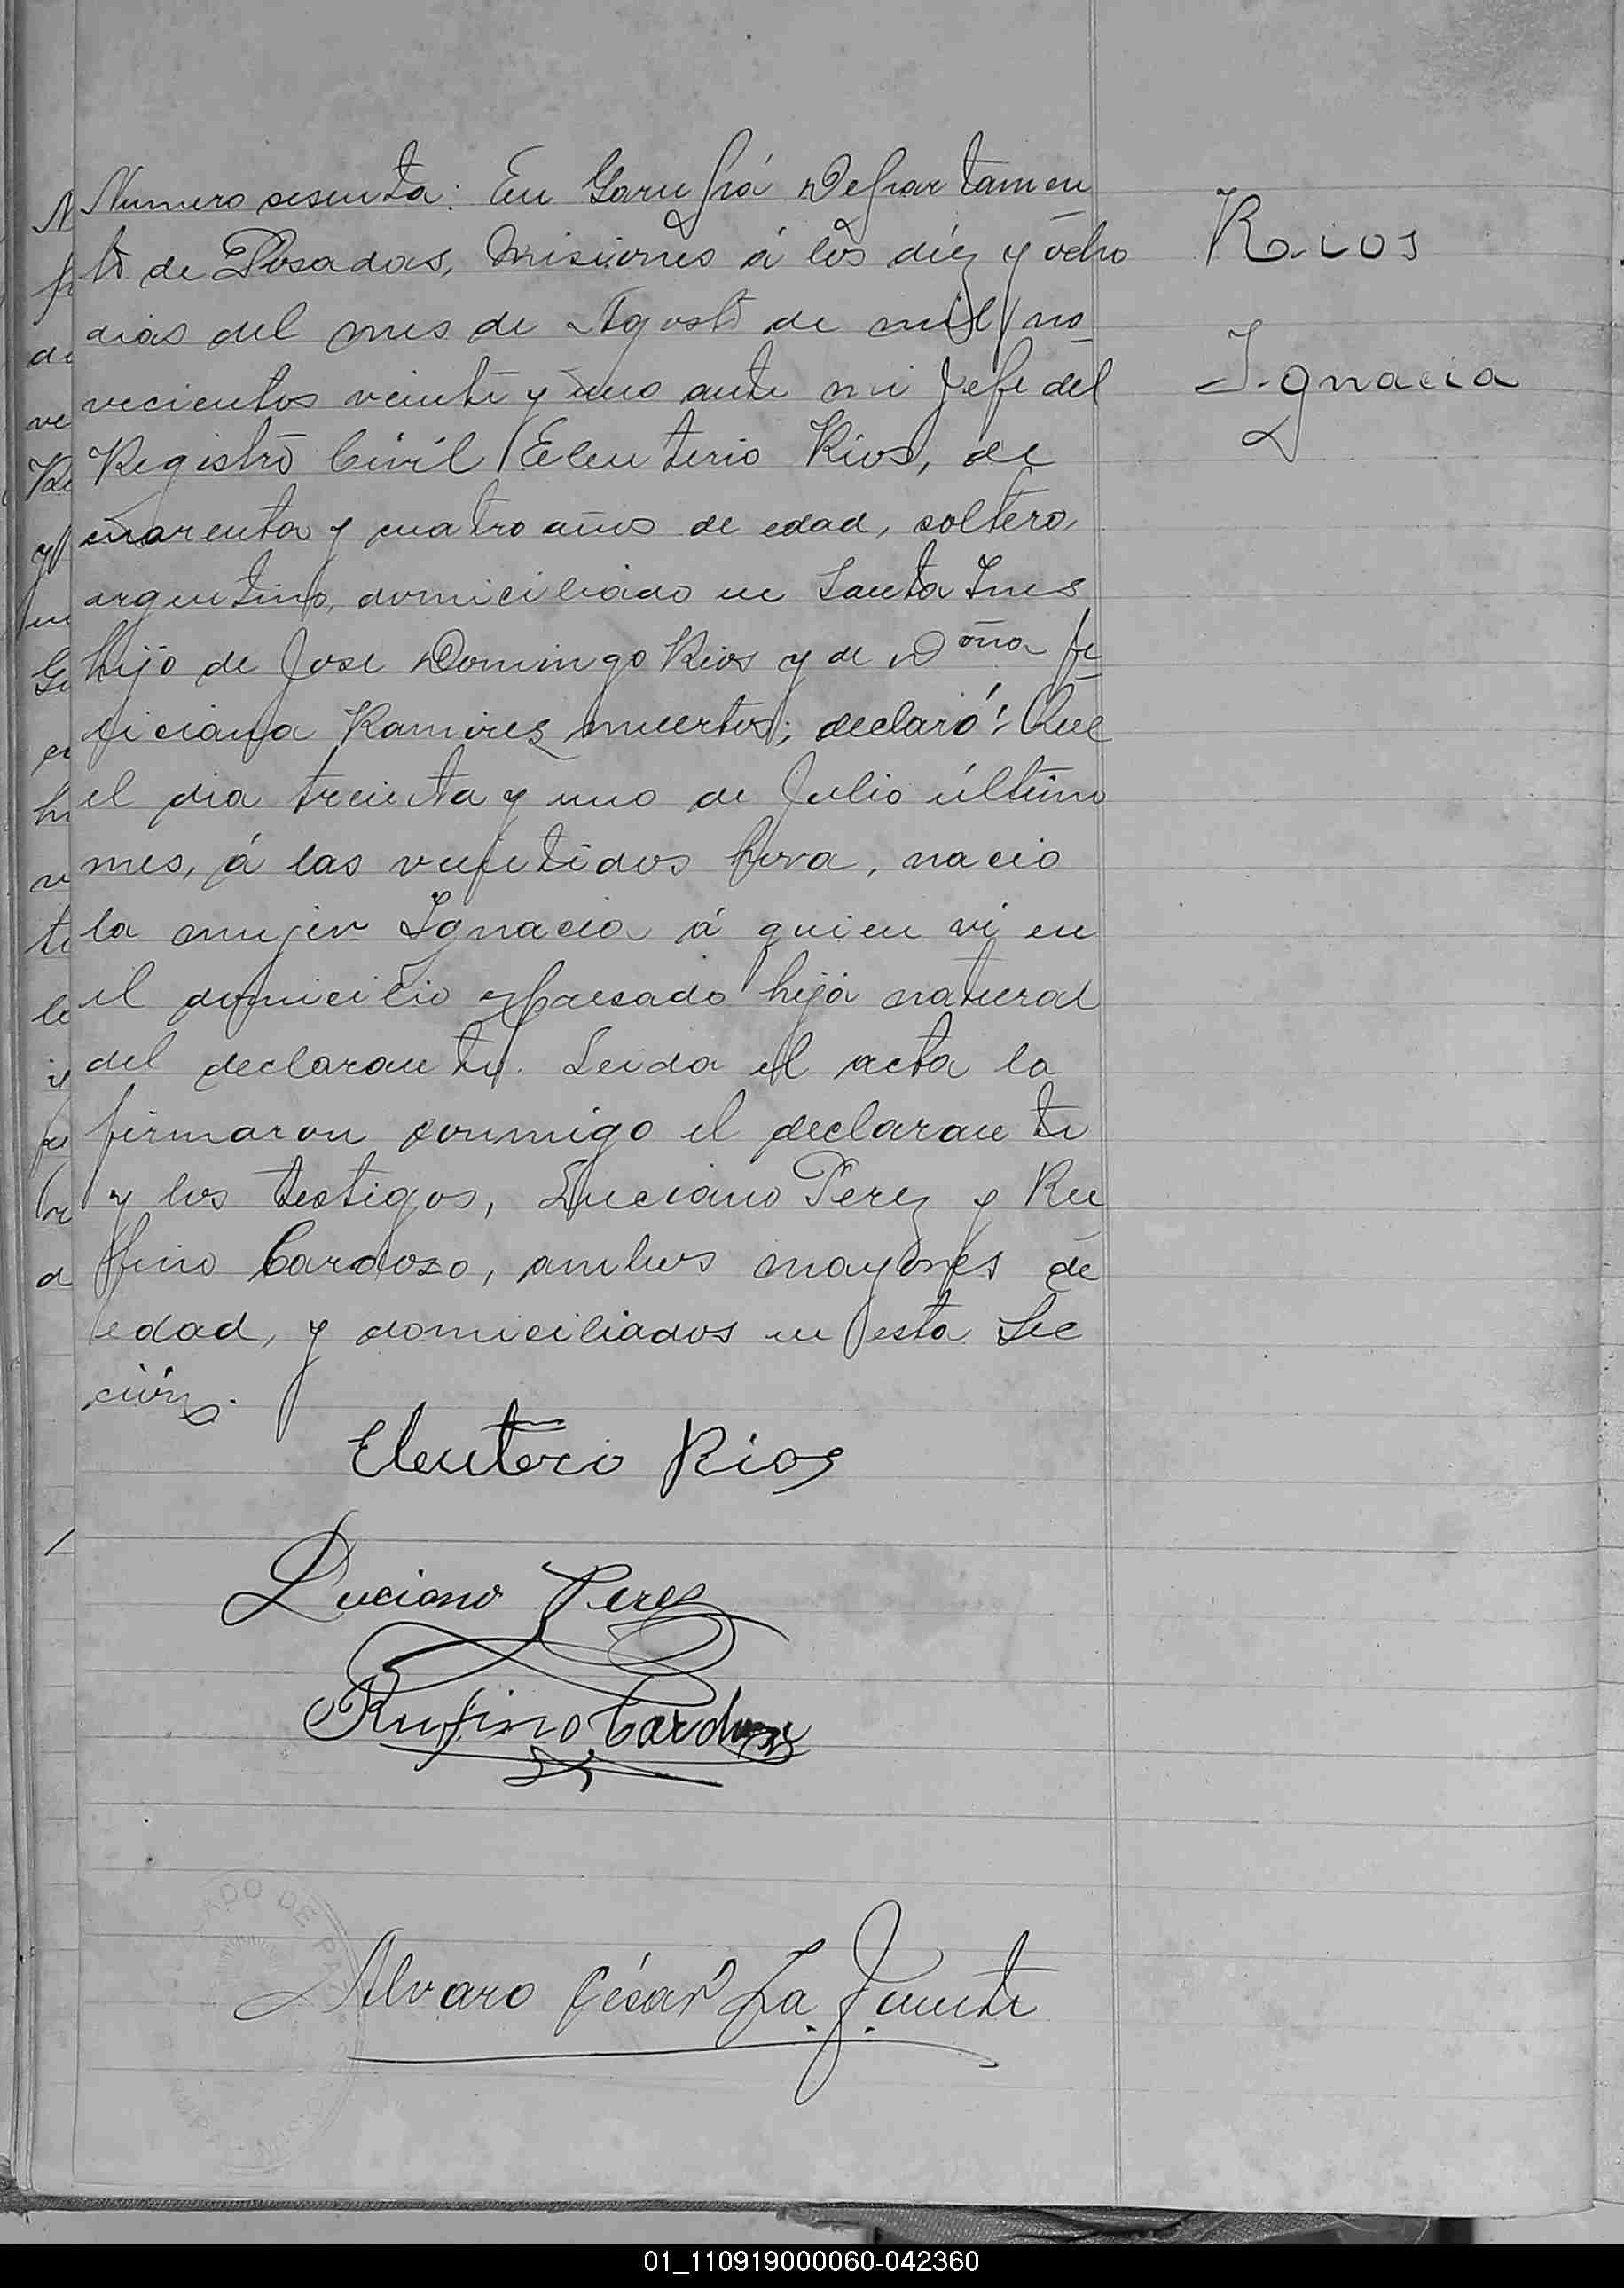 Numero sesenta: En Garupá Departamen
to de Posadas, Misiones á los diez y ocho
dias del mes de Agosto de mil no
vecientos veinte y uno ante mi Jefe del
Registro Civil Eleuterio Rios, de
cuarenta y cuatro años de edad, soltero,
argentino, domiciliado en Santa Ines
hijo de Jose Domingo Rios y de Doña Fe
liciana Ramirez muertos; declaró: Que
el dia treinta y uno de Julio último
mes, á las veintidos hora, nacio
la mujer Ignacia á quien vi en
el domicilio expresado hija natural
del declarante. Leida el acta la
firmaron conmigo el declarante
y los testigos, Luciano Perez y Ru
fino Cardozo, ambos mayores de
edad, y domiciliados en esta Sec
ción.
Rios
Ignacia
Eleuterio Rios
Luciano Perez
Rufino Cardozo
Alvaro César La Fuente
01_110919000060-042360